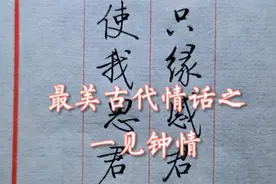 只缘感君
使我思君
最美古代情话之
一见钟情